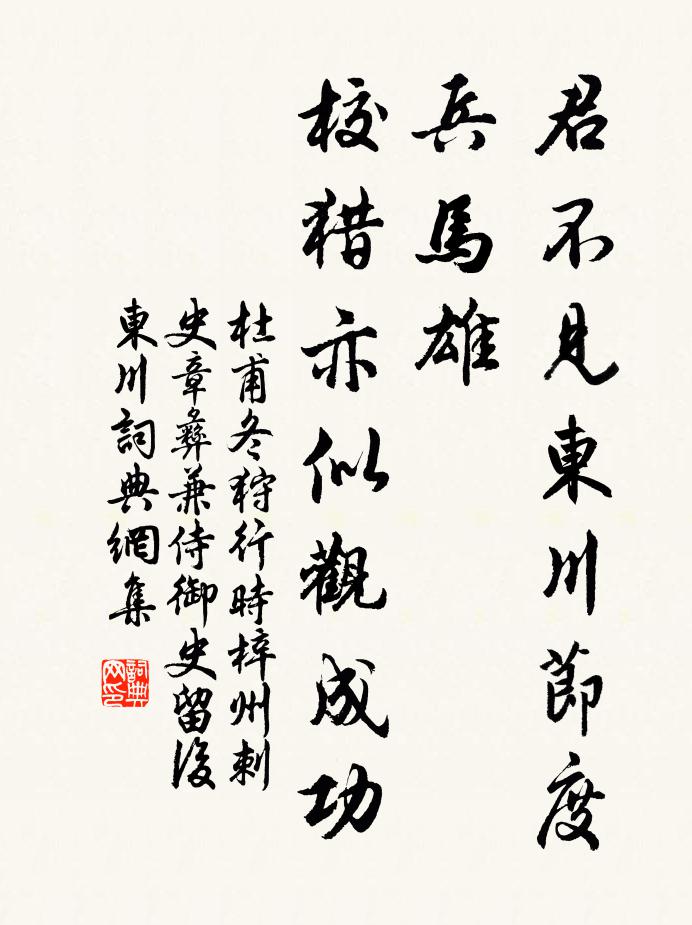 君不見東川節度
兵馬雄
校猎亦似觀成功
杜甫冬狩行時梓州刺
史章彝兼侍御史留後
東川詞典網集
詞典网印